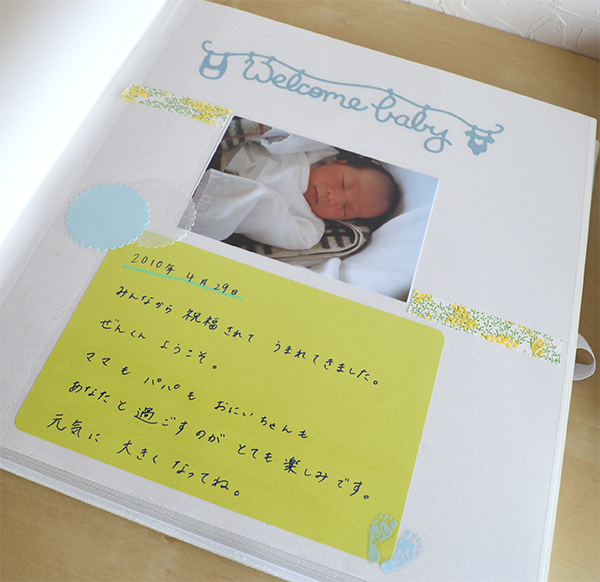 Welcome baby
2010年 4月29日
みんなから 祝福されて うまれてきました。
ぜんくん ようこそ。
ママも パパも おにいちゃんも
あなたと過ごすのが とても楽しみです。
元気に 大きくなってね。